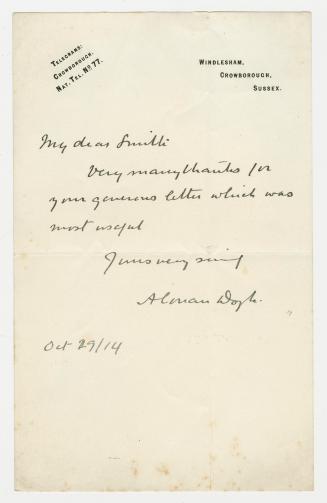 TELEGRAMS:
CROWBOROUGH.
NAT. TEL. No. 77.
WINDLESHAM,
CROWBOROUGH,
SUSSEX.
My dear Smith
Very many thanks for
your generous letter which was
most useful
Yours very sincerely
A Conan Doyle.
Oct 29/14